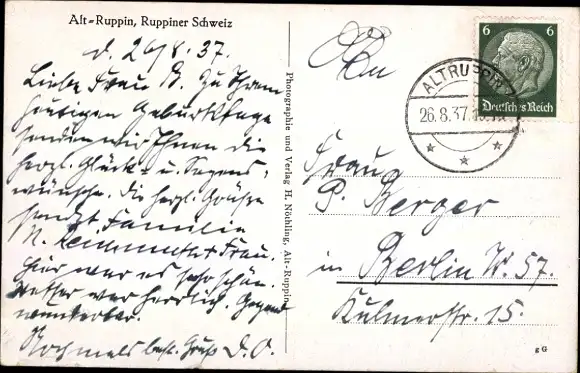 Alt-Ruppin, Ruppiner Schweiz
d. 26/8. 37.
Liebe Frau B. Zu Ihrem
heutigen Geburtstage
senden wir Ihnen die
herzl. Glück- u. Segens-
wünsche. Die herzl. Grüße
sendet Familie
N. + Frau.
Hier war es sehr schön.
Wetter war herrlich. Gegend
wunderbar.
Nochmals best. Gruß D. O.
Photographie und Verlag H. Nöthling, Alt-Ruppin
6 6
Deutsches Reich
ALTRUPPIN
26.8.37.
Frau
P. Berger
in Berlin W. 57.
Kulmerstr. 15.
g G